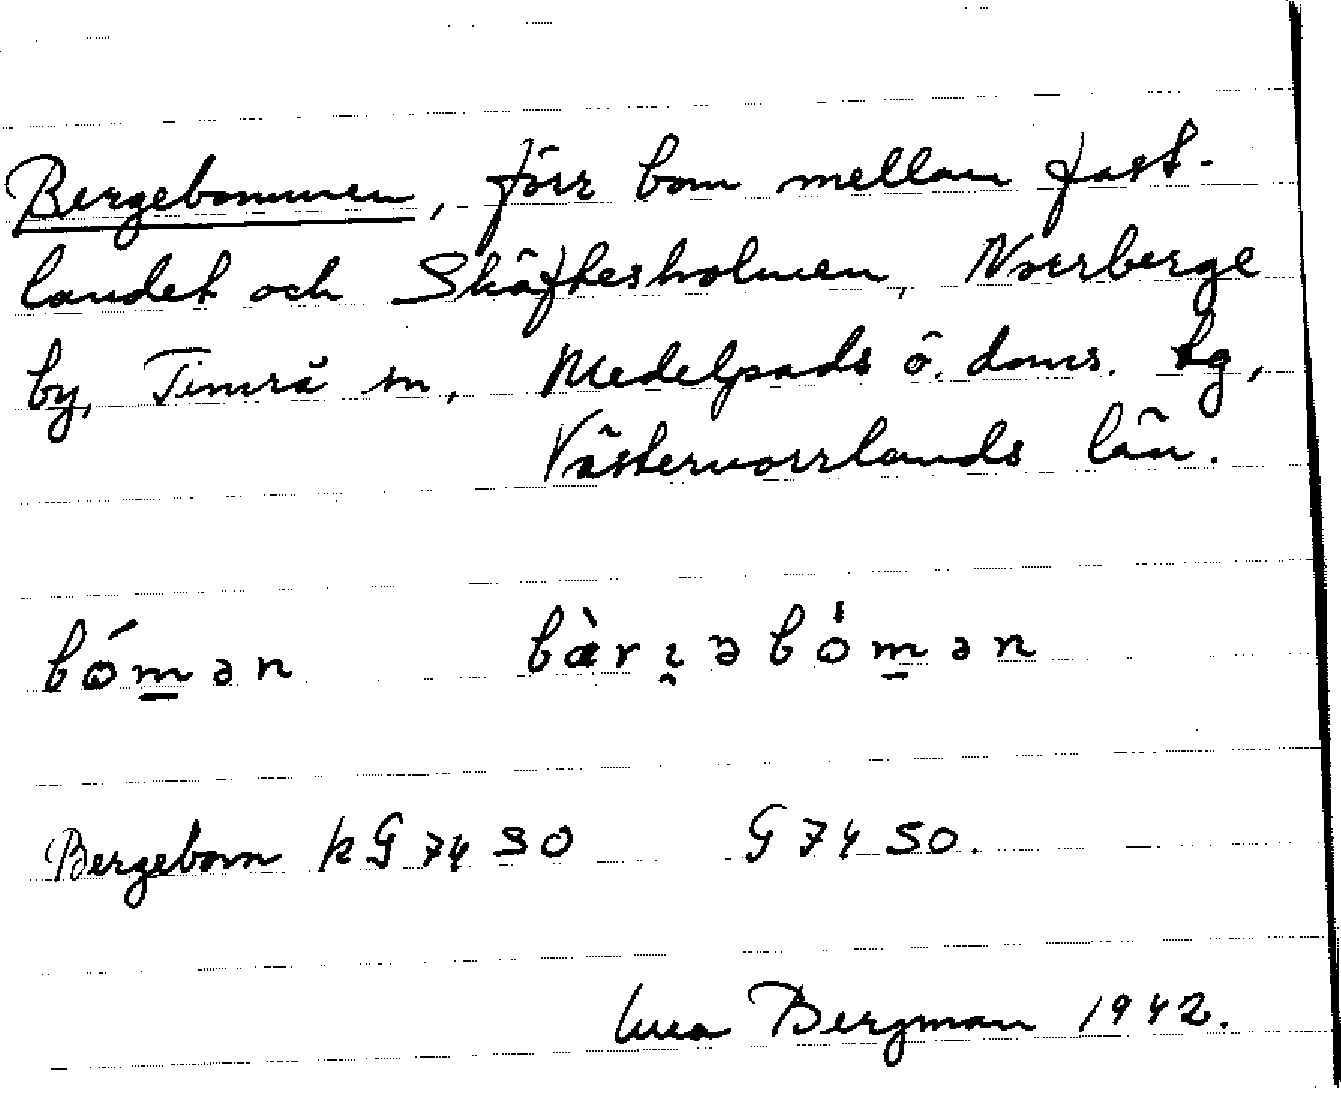 Bergebommen, förr bom mellan fast-
landet och Skäftesholmen, Norrberge
by, Timrå sn, Medelpads ö. doms. tg,
Västernorrlands län.
bóm̲ən bàrı̯əbóm̲ən
Bergebom kG 7450 G 7450.
Bergman 1942.